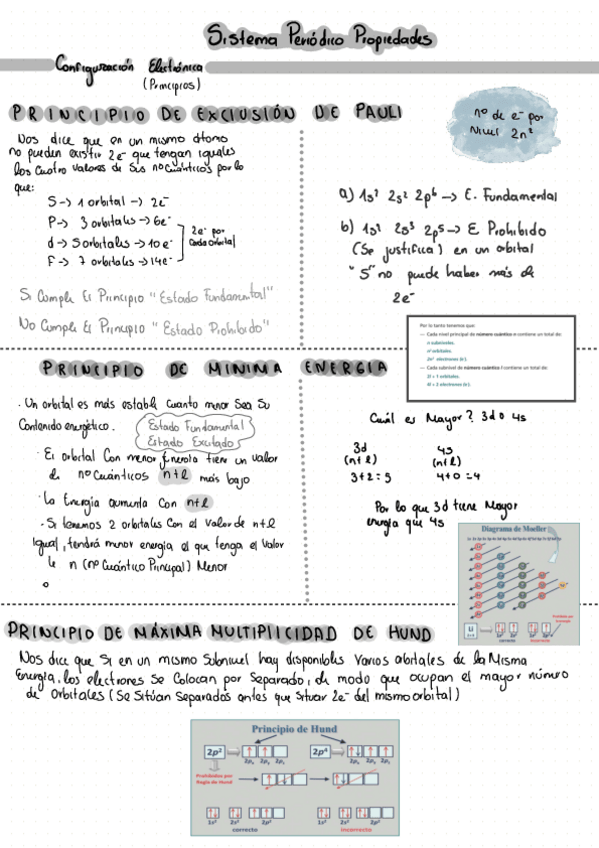 Sistema Periódico Propiedades
Configuración Electrónica
(Principios)
PRINCIPIO DE EXCLUSIÓN DE PAULI
nº de e⁻ por
Nivel 2n²
Nos dice que en un mismo átomo
no pueden existir 2e⁻ que tengan iguales
los cuatro valores de sus nº cuánticos por lo
que:
S -> 1 orbital -> 2e⁻
P -> 3 orbitales -> 6e⁻
d -> 5 orbitales -> 10e⁻
F -> 7 orbitales -> 14e⁻
2e⁻ por
cada orbital
Si Cumple El Principio "Estado Fundamental"
No Cumple El Principio "Estado Prohibido"
a) 1s² 2s² 2p⁶ -> E. Fundamental
b) 1s² 2s³ 2p⁵ -> E Prohibido
(Se justifica) en un orbital
"S" no puede haber más de
2e⁻
Por lo tanto tenemos que:
— Cada nivel principal de número cuántico n contiene un total de:
n subniveles.
n² orbitales.
2n² electrones (e⁻).
— Cada subnivel de número cuántico l contiene un total de:
2l + 1 orbitales.
4l + 2 electrones (e⁻).
PRINCIPIO DE MINIMA ENERGIA
· Un orbital es más estable cuanto menor sea su
Contenido energético.
Estado Fundamental
Estado Excitado
· El orbital con menor Energía tiene un valor
de nº cuánticos n+l más bajo
· La Energía aumenta con n+l
· Si tenemos 2 orbitales con el valor de n+l
igual, tendrá menor energia el que tenga el valor
de n (nº Cuántico Principal) Menor
Cuál es Mayor? 3d o 4s
3d 4s
(n+l) (n+l)
3+2=5 4+0=4
Por lo que 3d tiene Mayor
energía que 4s
Diagrama de Moeller
Li
correcto incorrecto
PRINCIPIO DE MÁXIMA MULTIPLICIDAD DE HUND
Nos dice que si en un mismo subnivel hay disponibles varios orbitales de la Misma
Energía, los electrones se colocan por separado, de modo que ocupan el mayor número
de orbitales (Se sitúan separados antes que situar 2e⁻ del mismo orbital)
Principio de Hund
2p² 2p⁴
2pₓ 2pᵧ 2p_z 2pₓ 2pᵧ 2p_z
Prohibidos por
Regla de Hund
1s² 2s² 2p² 1s² 2s² 2p²
correcto incorrecto